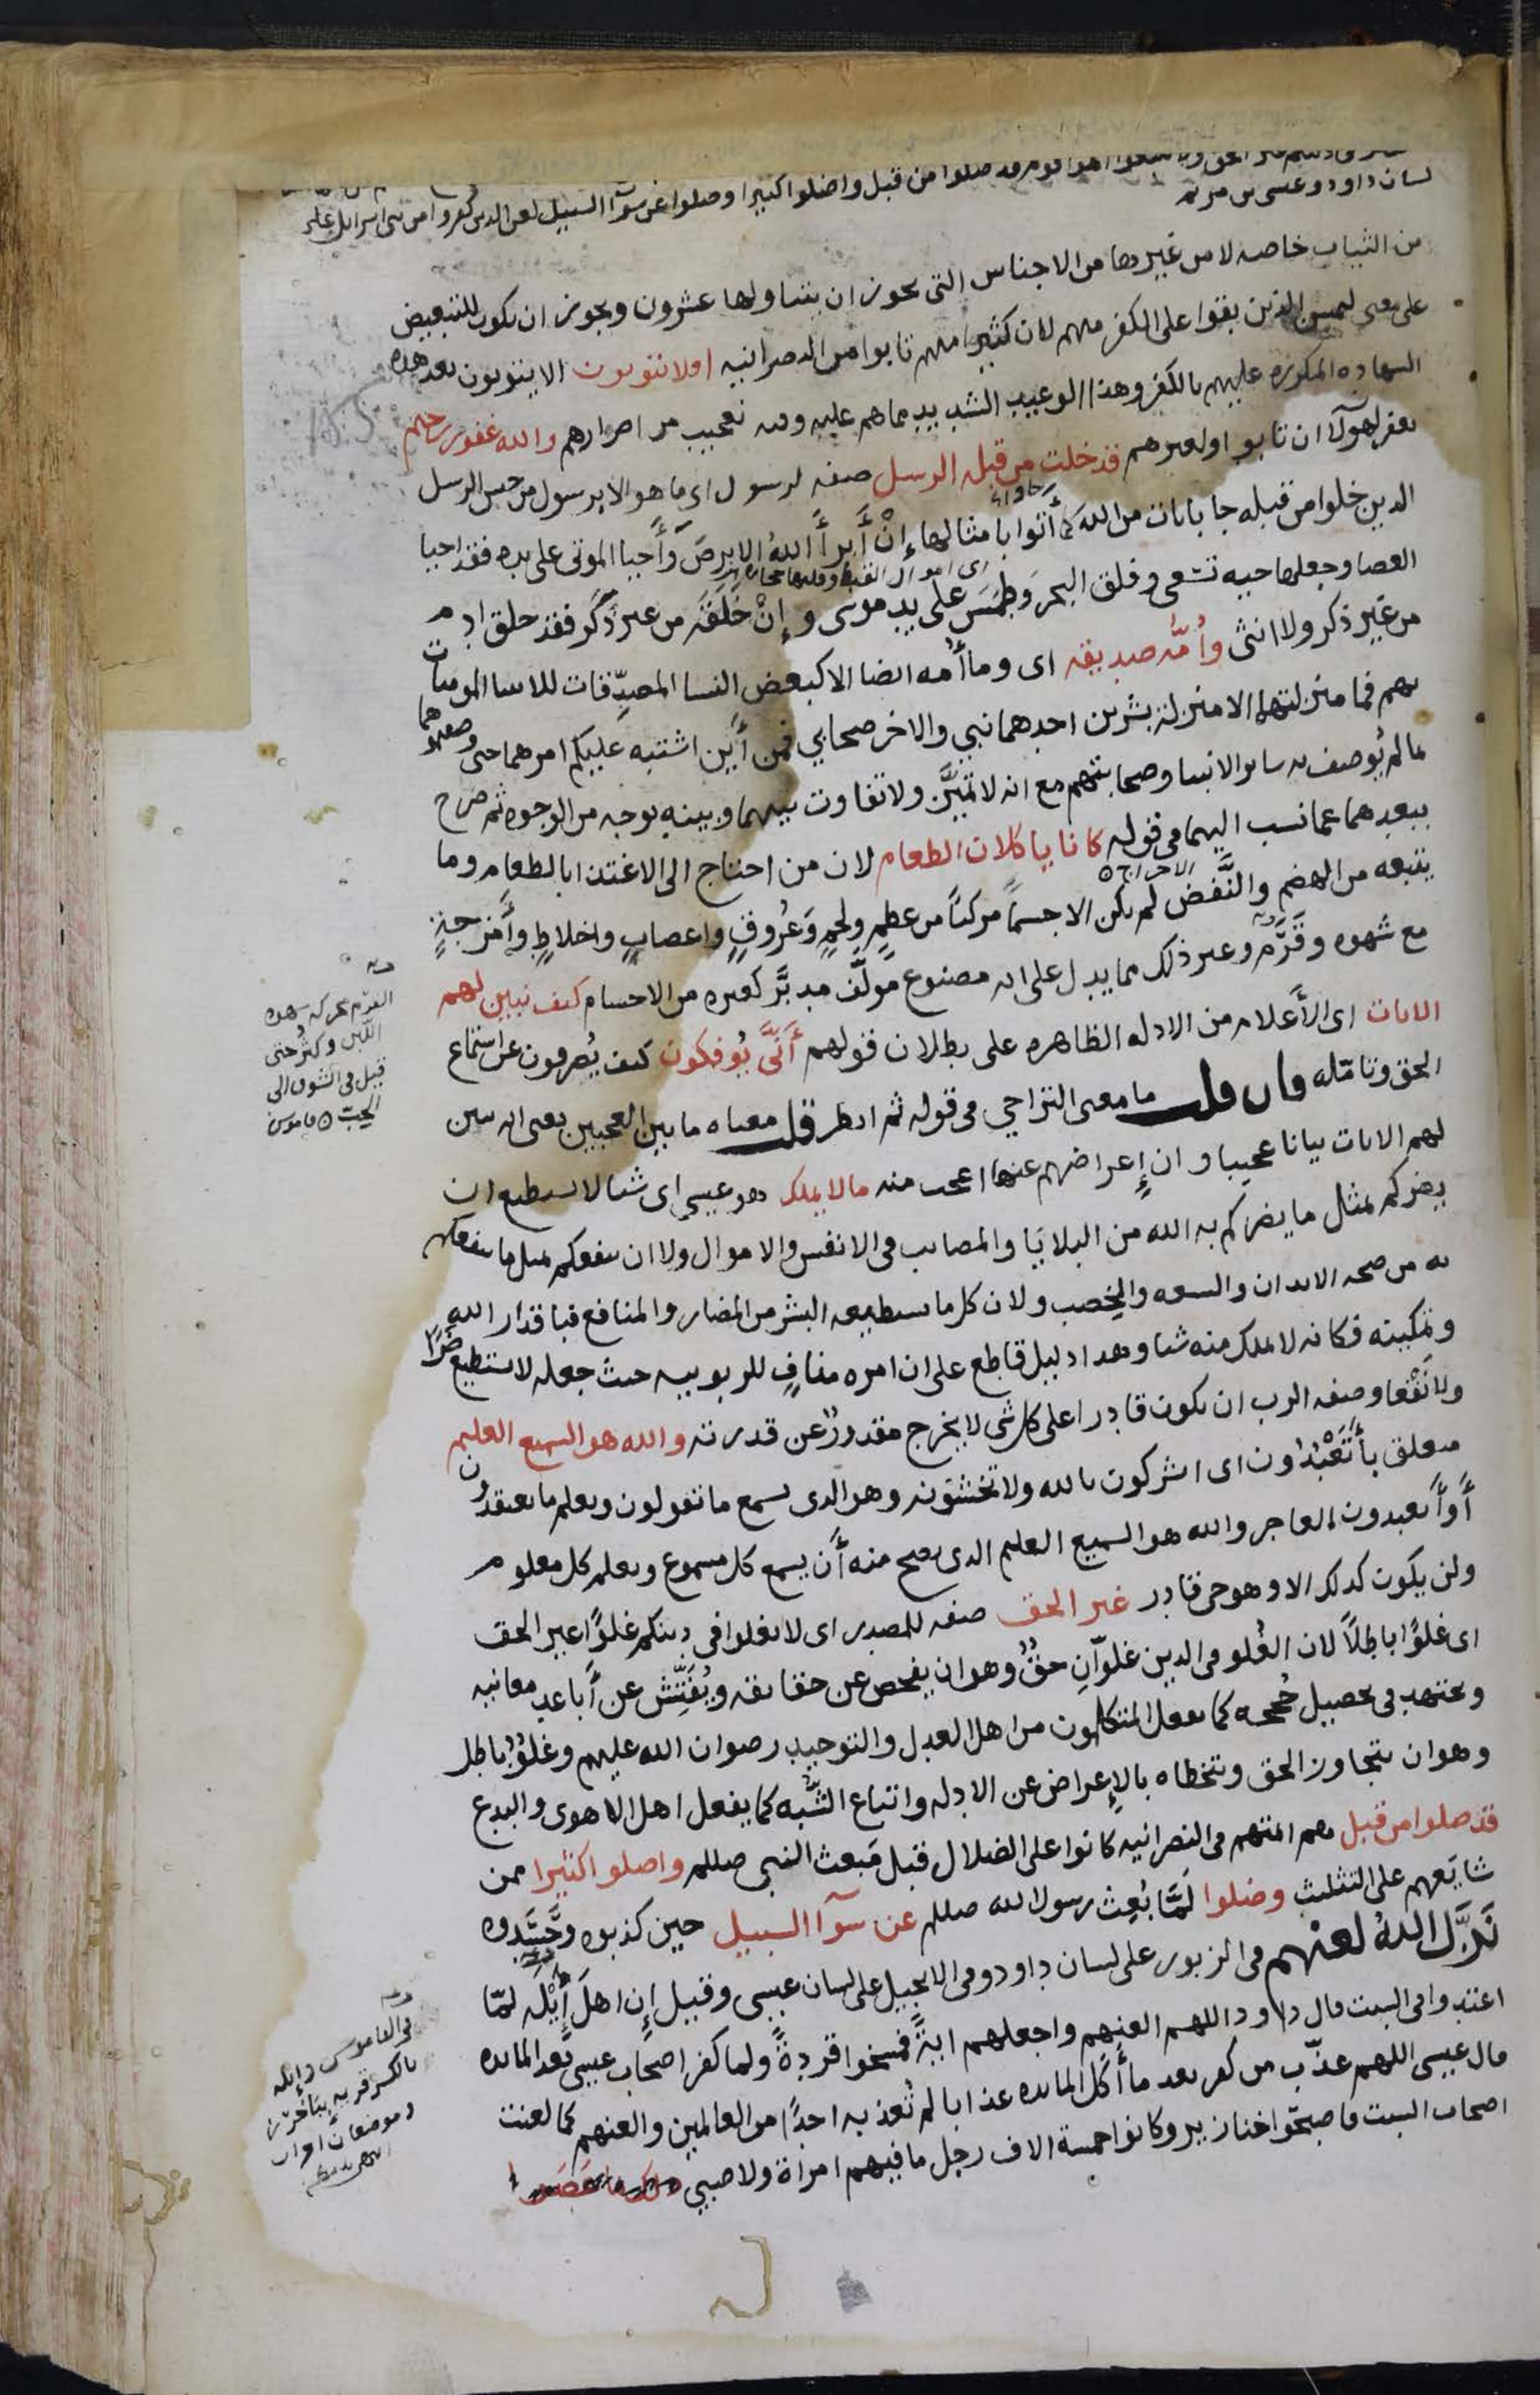 ولا تتبعوا اهوا قوم قد ضلوا من قبل واضلوا كثيرا وضلوا عن سوآ السبيل لعن الدين كفروا من بنى اسرايل على
لسان داود وعيسى بن مريم
من الثياب خاصه لا من غيرها من الاجناس التى يجوز ان يتناولها عشرون ويجوز ان يكون للتبعيض
على معنى ليمسن الذين بقوا على الكفر منهم لان كثيرا منهم تابوا من النصرانيه افلا يتوبون الا يتوبون بعد هذه
الشهاده المكرره عليهم بالكفر وهذا الوعيد الشديد مما هم عليه وفيه تعجيب من اصرارهم والله غفور رحيم
يغفر لهولآ ان تابوا ولغيرهم قد خلت من قبله الرسل صفه لرسول اى ما هو الا رسول من جنس الرسل
الدين خلوا من قبله جا بايات من الله كما أتوا بامثالها إنْ أَبرأَ اللهُ الابرصَ وأَحيا الموتى على يده فقد احيا
العصا وجعلها حيه تسعى وفلق البحرَ وطمَسَ على يد موسى وإنْ خَلَقَه من غير ذَكَر فقد خلق ادم
من غير ذكر ولا انثى وأُمُّه صديقه اى وما أُمه ايضا الا كبعض النسا المصدِّقات للانبيا المومنات
بهم فما منزلتهما الا منزله بشرين احدهما نبي والاخر صحابي فمن أَين اشتبه عليكم امرهما حتى وصفتموهما
بما لم يُوصف به ساير الانبيا وصحابتهم مع انه لا تميُّز ولا تفاوت بينهما وبينهم بوجه من الوجوه ثم صرح
ببعدهما عما نسب اليهما فى قوله كانا ياكلان الطعام لان من احتاج الى الاغتذا بالطعام وما
يتبعه من الهضم والنَّفض لم يكن الا جسماً مركباً من عظمٍ ولحمٍ وعُروقٍ واعصابٍ واخلاطٍ وأمزجةٍ
مع شهوه وقَرَمٍ وغير ذلك مما يدل على انه مصنوع مؤلَّف مدبَّر كغيره من الاجسام كيف نبين لهم
الايات اى الأَعلام من الادله الظاهره على بطلان قولهم أَنَّى يُوفكون كيف يُصرفون عن استماع
الحق وتامّله فان قلت ما معنى التراخي فى قوله ثم انظر قلت معناه ما بين العجبين يعنى انه بين
لهم الايات بيانا عجيبا وان إعراضهم عنها اعجب منه مالا يملك هو عيسى اى شيا لا يستطيع ان
يضركم بمثل ما يضركم به الله من البلايا والمصايب فى الانفس والاموال ولا ان ينفعكم بمثل ما ينفعكم
به من صحه الابدان والسعه والخِصب ولان كل ما يستطيعه البشر من المضار والمنافع فباقدار الله
وتمكينه فكانه لا يملك منه شيا وهدا دليل قاطع على ان امره منافٍ للربوبيه حيث جعله لا يستطيع ضَرًّا
ولا نَفْعا وصفه الرب ان يكون قادرا على كل شى لا يخرج مقدورٌ عن قدرته والله هو السميع العليم
متعلق بأَتَعْبُدُون اى اتشركون بالله ولا تخشَونه وهو الدى يسمع ما تقولون ويعلم ما تعتقدون
أَوأَتعبدون العاجز والله هو السميع العليم الدى يصح منه أَن يسمع كل مسموع ويعلم كل معلوم
ولن يكون كدلك الا وهو حى قادر غير الحق صفه للمصدر اى لا تغلوا فى دينكم غلوًّا غير الحق
اى غلوًّا باطلاً لان الغُلو فى الدين غلوّانِ حقٌّ وهو ان يفحص عن حقايقه ويُفَتِّش عن أَباعد معانيه
ويجتهد فى تحصيل حُججه كما يفعل المتكلمون من اهل العدل والتوحيد رضوان الله عليهم وغلوٌّ باطل
وهو ان يتجاوز الحق ويتخطاه بالإعراض عن الادله واتباع الشُّبَه كما يفعل اهل الاهوى والبدع
قد ضلوا من قبل هم ائمتهم فى النصرانيه كانوا على الضلال قبل مَبعث النبى صللم واضلوا كثيرا ممن
شايَعهم على التثليث وضلوا لَمَّا بُعِث رسول الله صللم عن سوآ السبيل حين كذبوه وحَسَدوه
نَزَّل اللهُ لعنهم فى الزبور على لسان داود وفى الانجيل على لسان عيسى وقيل إن اهلَ أَيْلَه لمّا
اعتدوا فى السبت قال داود اللهم العنهم واجعلهم ايةً فمسخوا قردةً ولما كفر اصحاب عيسى بَعد المايده
قال عيسى اللهم عذّب من كفر بعد ما أَكل المايده عذابا لم تُعذبه احدًا من العالمين والعنهم كما لعنت
اصحاب السبت فاصبحوا خنازير وكانوا خمسة الاف رجل ما فيهم امراة ولا صبي ذلك بما عَصَوا
القرم محركه شهوه
اللبن وكثر حتى
قيل فى الشوق الى
الحبيب قاموس
فى القاموس وايله
بالكسر قريه